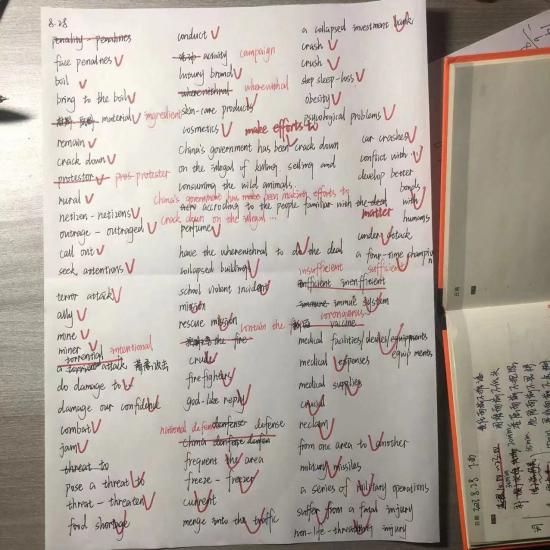 8.28
penality - penalties
face penalties
boil
bring to the boil
material ingredient
remain
crack down
protestor pros-protester
rural
netizen - netizens
outrage - outraged
call out
seek attentions
terror attack
ally
mine
miner
torrential intentional
attack 蓄意攻击
do damage to
damage our confident
combat
jam
threat to
pose a threat to
threat - threaten
food shortage
conduct
activity campaign
luxury brand
wherewithal wherewithal
skin-care products
cosmetics make efforts to
China's government has been crack down
on the illegal of killing, selling and
consuming the wild animals.
China's government has make been making efforts to
according to the people familiar with the deal matter
crack down on the illegal ...
perfume
have the wherewithal to do the deal
collapsed building
school violent incident
mission
rescue mission
contain the fire
cruel
firefighter
goal-like reply
national defense defense
China defense
frequent the area
freeze - freezer
current
merge into the traffic
a collapsed investment bank
crash
crush
step sleep-loss
obesity
psycological problems
car crashes
conflict with
develop better
bonds
with
humans
under attack
a four-time champion
insufficient sufficient
immune system
coronavirus
vaccine
medical facilities/device/equipments
equipments
medical expenses
medical supplies
crucial
reclaim
from one area to another
military missiles
a series of military operations
suffer from a fatal injury
non-life-threatening injury
2021.8.28